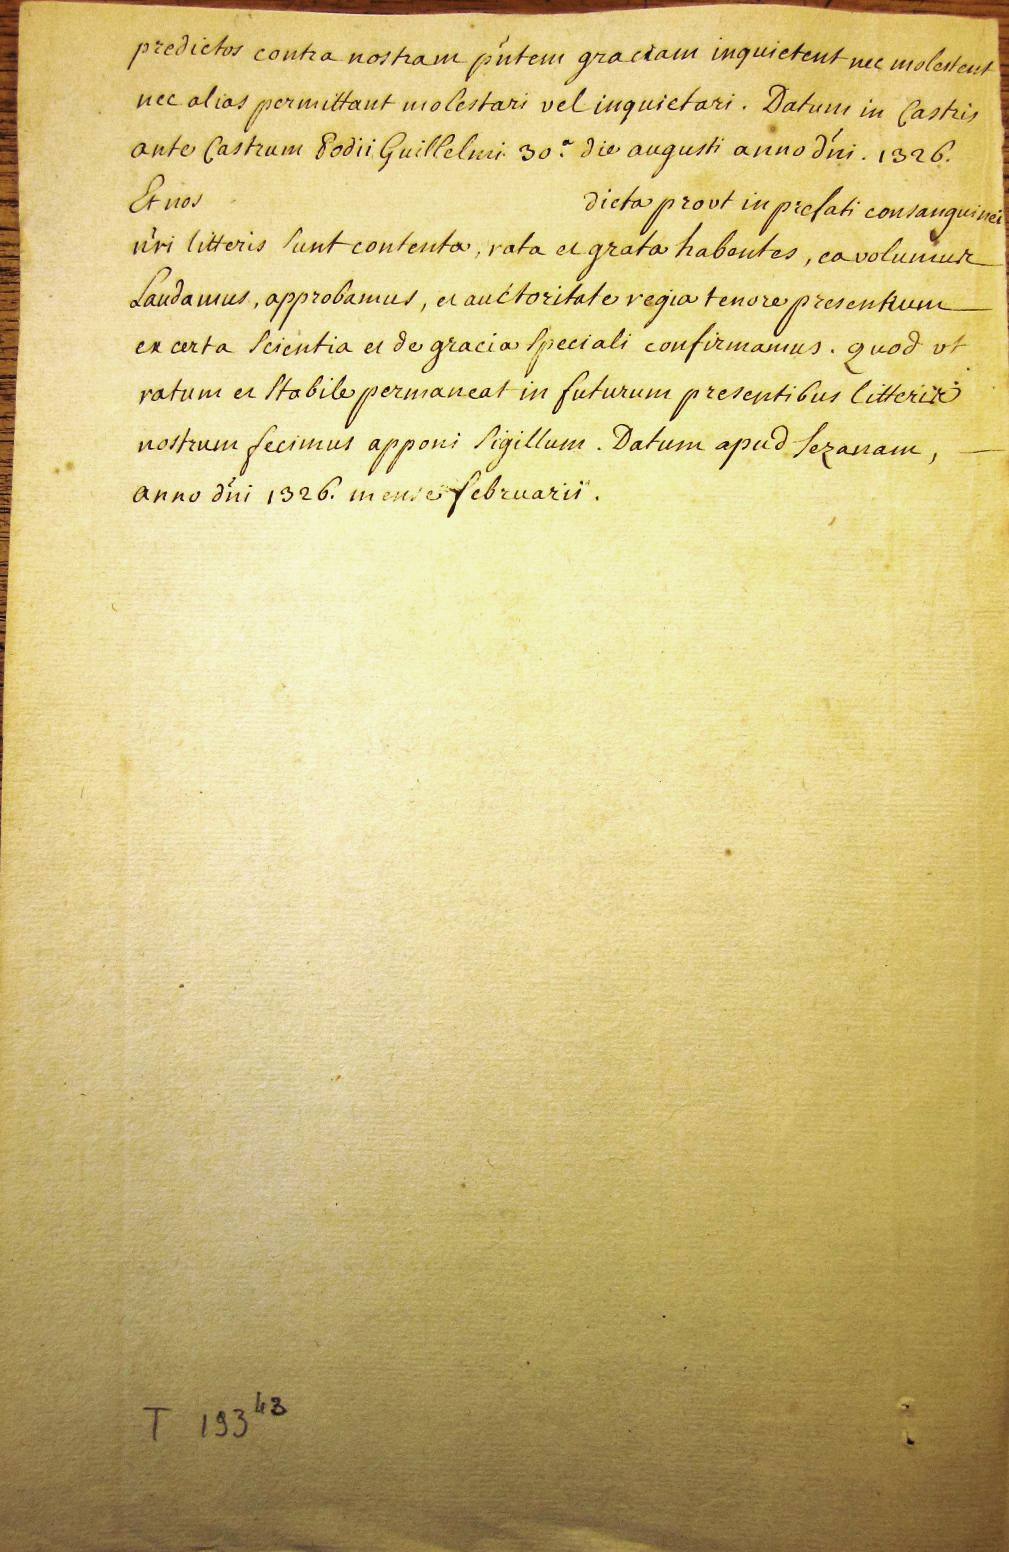 predictos contra nostram p̄ntem graciam inquietent nec molestent
nec alias permittant molestari vel inquietari. Datum in Castris
ante Castrum Podii Guillelmi 30.ª die augusti anno d̄ni. 1326.
Et nos dicta provt in prefati consanguinei
n̄ri litteris sunt contenta, rata et grata habentes, ea volumus
Laudamus, approbamus, et auctoritate regia tenore presentium
ex certa scientia et de gracia speciali confirmamus. quod vt
ratum et stabile permaneat in futurum presentibus litteris
nostrum fecimus apponi sigillum. Datum apud sezanam,
anno d̄ni 1326. mense februarii.
T 193⁴³